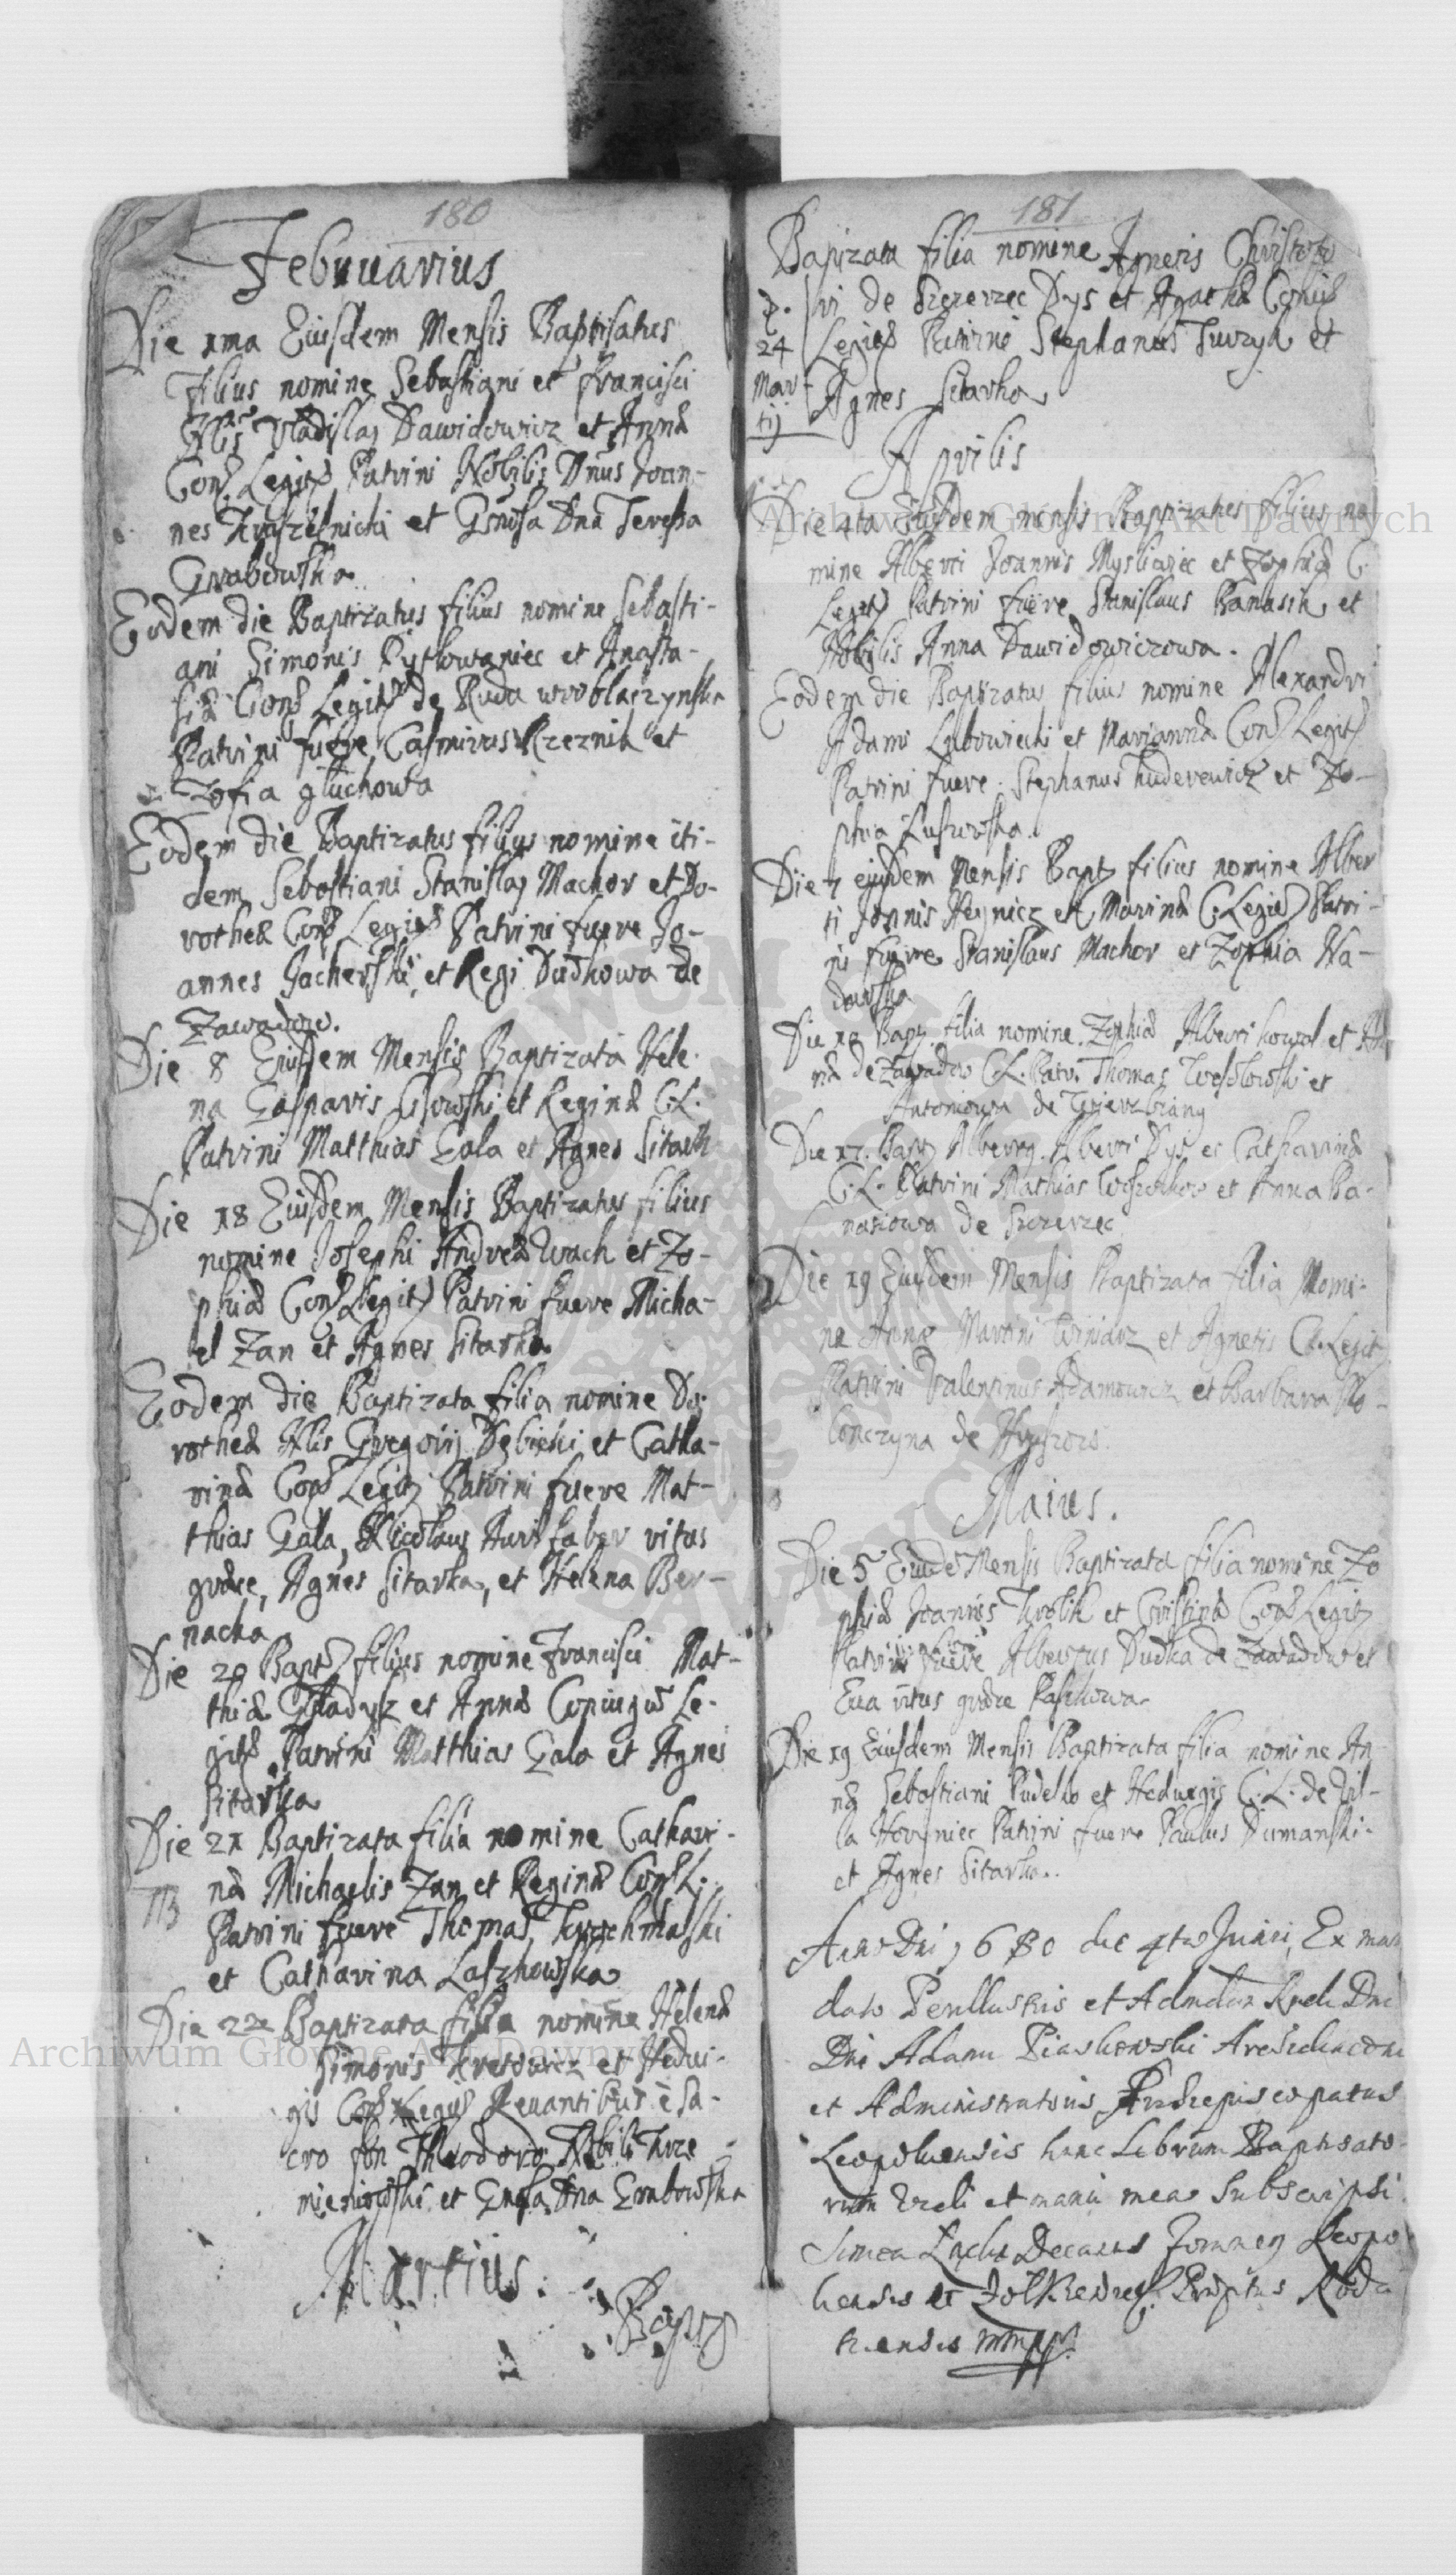 180
Februarius
Die 1ma Eiusdem Mensis Baptisatus
Filius nomine Sebastiani et Francisci
Vladislaj Dawidowicz et Annæ
Conj Legitz Patrini Nobilis Dnus Joan-
nes et Gnosa Dna Teressa
Grabowska
Eodem die Baptizatus filius nomine Sebasti-
ani Simonis et Anasta-
siæ Conj Legitz de Ruda wroblaczynska
Patrini fuere Casmirus Rzeznik et
Zofia gluchowa
Eodem die Baptizatus filius nomine iti-
dem Sebastiani Stanislaj Machor et Do-
rotheæ Conj Legitz Patrini fuere Jo-
annes et Regi Dudkowa de
Zawadow.
Die 8 Eiusdem Mensis Baptizata Hele-
na Gasparis Lisowski et Reginæ C.L.
Patrini Matthias Gala et Agnes Sitark
Die 18 Eiusdem Mensis Baptizatus filius
nomine Josephi Andreæ Wach et Zo-
phiæ Conj Legitz Patrini fuere Micha-
el Zan et Agnes Sitarka
Eodem die Baptizata filia nomine Do-
rotheæ Nlis Gregorij Dębicki et Catha-
rinæ Conj Legitz Patrini fuere Mat-
thias Gala, Nicolaus Aurifaber ritus
græce, Agnes Sitarka, et Helena Ber-
nacka
Die 20 Bapt filius nomine Francisci Mat-
thiæ Gladysz et Annæ Coniugu Le-
gitz Patrini Matthias Gala et Agnes
Sitarka
Die 21 Baptizata filia nomine Cathari-
næ Michaelis Zan et Reginæ Conj L.
Patrini fuere Thomas Krochmalski
et Catharina Laszkowska
Die 22a Baptizata filia nomine Helenæ
Simonis et Hedui-
gis Conj Legit Levantibus è Sa-
cro fon Theodoro Nobili Krze
mieniowski et Gnosa Dna Grabowska
Martius.
Bapt
181
Bapizata filia nomine Agnetis Christofo
ri de Szczerzec Dys et Agathæ Coniu
Legit Patrini Stephanus et
Agnes Sitarka
24
Mar-
tij
Aprilis
Die 4ta Eiusdem mensis Baptizatus filius no
mine Alberti Joannis Mysliwiec et Zophiæ C.
Legit Patrini fuere Stanislaus Banasik et
Nobilis Anna Dawidowiczowa.
Eodem die Baptizatus filius nomine Alexandri
Adami Lubowiecki et Mariannæ Conj Legit
Patrini fuere Stephanus et Zo-
phia
Die 7 eiusdem Mensis Bapt filius nomine Alber
ti Joannis et Marinæ C. Legit Patri-
ni fuere Stanislaus Machor et Zophia Na-
dowska
Die Bapt filia nomine Zophiæ Alberti kowal et An
næ de Zawadow C.L. Patr. Thomas et
Antoniowa de
Die 17. Bapt Alberty Alberti Dys et Catharinæ
C.L. Patrini Mathias et Anna Ba-
nasiowa de Szczerzec
Die 19 Eiusdem Mensis Baptizata filia Nomi-
ne Annæ Martini Winiarz et Agnetis C. Legit
Patrini Valentinus Adamowicz et Barbara
de
Maius.
Die 5 Eiude Mensis Baptizata filia nomine Zo
phiæ Joannis Krolik et Cristinæ Conj Legitz
Patrini fuere Albertus Dudka de Zawadow et
Eua ritus græce Paszkowa
Die 19 Eiusdem Mensis Baptizata filia nomine An
næ Sebastiani Pudelko et Heduigis C.L. de Vil-
la Patrini fuere Paulus Dumanski
et Agnes Sitarka.
Anno Dni 1680 die 4ta Junii, Ex man
dato Perillustris et Admdum Rndi Dni
Dni Adami Piaskowski Archidiaconi
et Administratoris Archiepiscopatus
Leopoliensis hunc Librum Baptisato-
rum et manu mea Subscripsi.
Decanus Leopo
liensis et